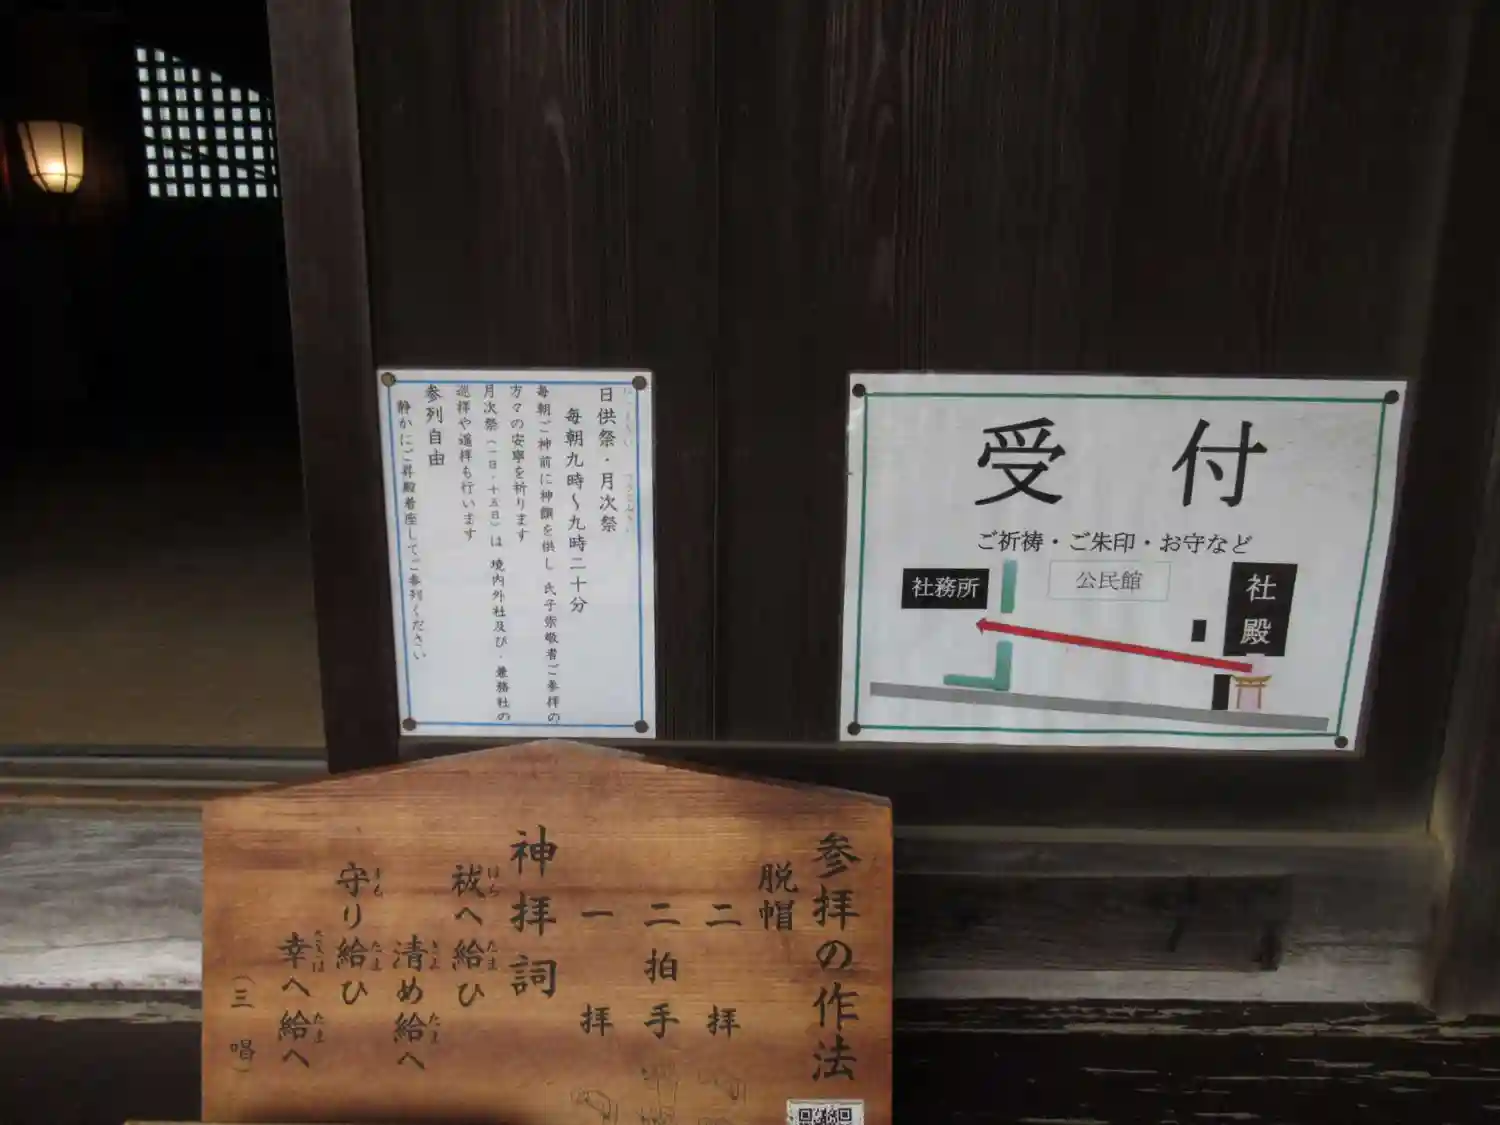 日供祭・月次祭
毎朝九時〜九時二十分
毎朝ご神前に神饌を供し 氏子崇敬者ご参拝の
方々の安寧を祈ります
月次祭（一日・十五日）は 境内外社及び・兼務社の
巡拝や遥拝も行います
参列自由
静かにご昇殿着座してご参列ください
受付
ご祈祷・ご朱印・お守など
社務所
公民館
社殿
参拝の作法
脱帽
二拝
二拍手
一拝
神拝詞
祓へ給ひ
はら
たま
清め給へ
きよ
たま
守り給ひ
まも
たま
幸へ給へ
さきは
たま
（三唱）